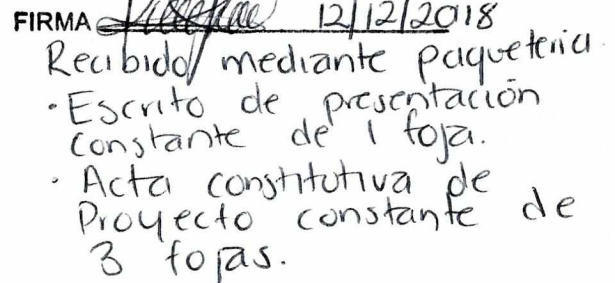 FIRMA 12/12/2018
Recibido mediante paquetería
· Escrito de presentación
constante de 1 foja.
· Acta constitutiva de
Proyecto constante de
3 fojas.